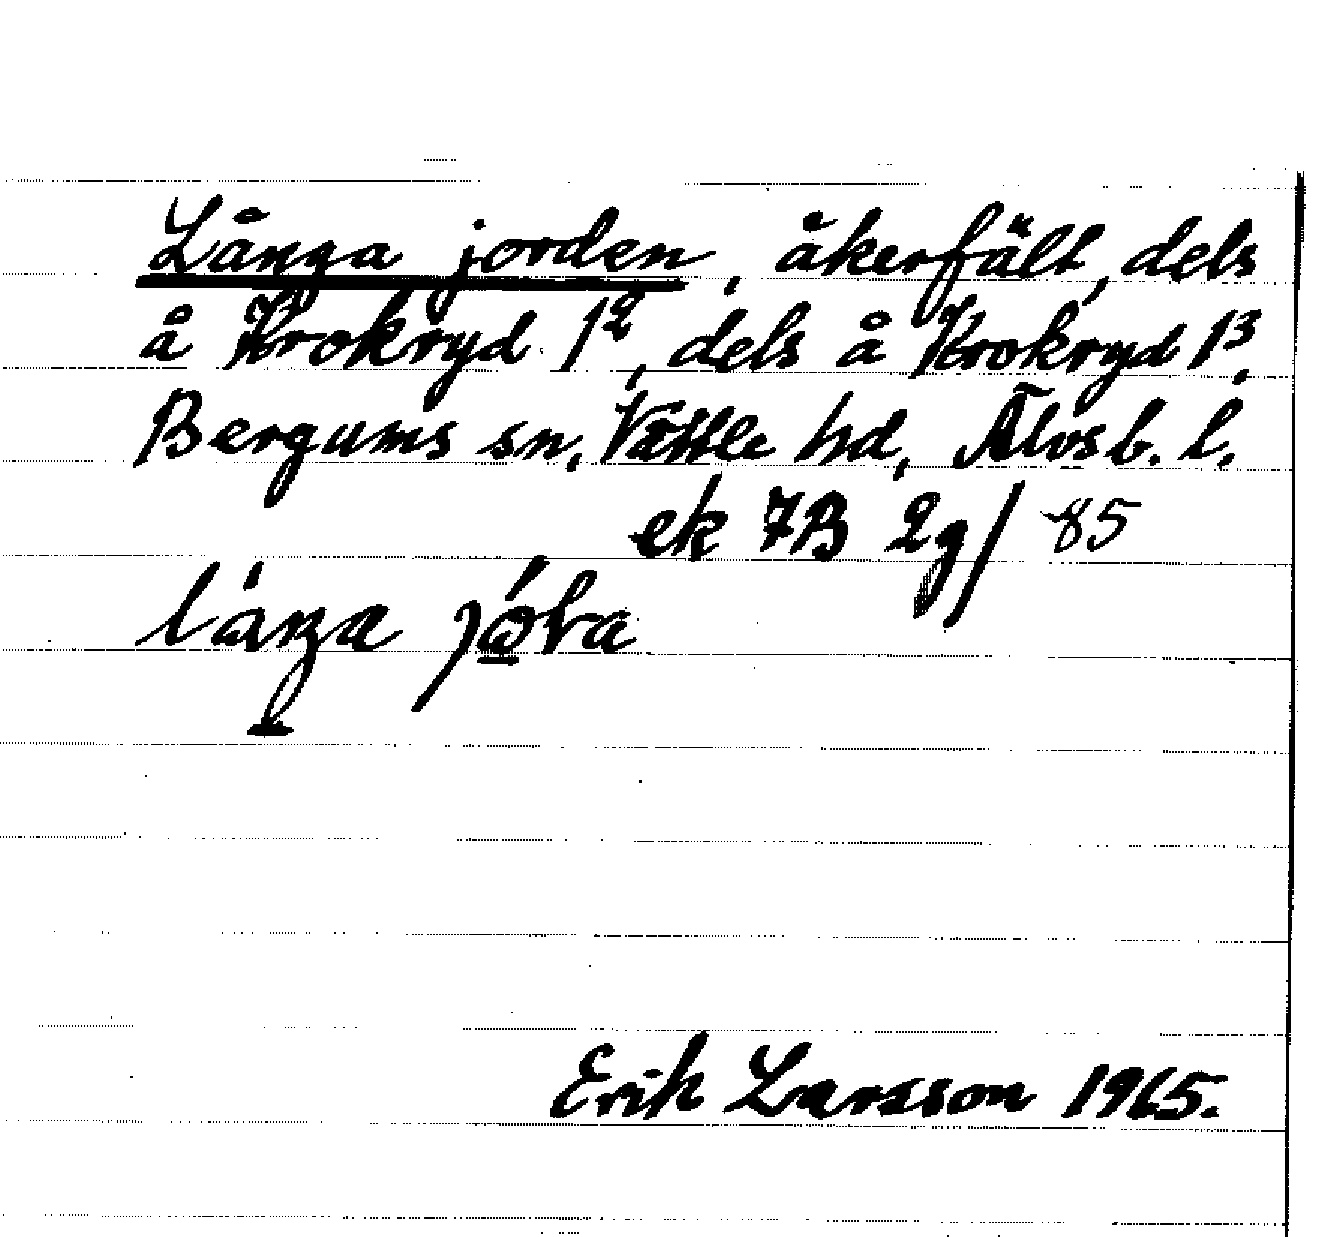 Långa jorden, åkerfält, dels
å Krokryd 1², dels å Krokryd 1³,
Bergums sn, Vättle hd, Älvsb. l.
ek 7B 2g/ 85
Erik Larsson 1965.